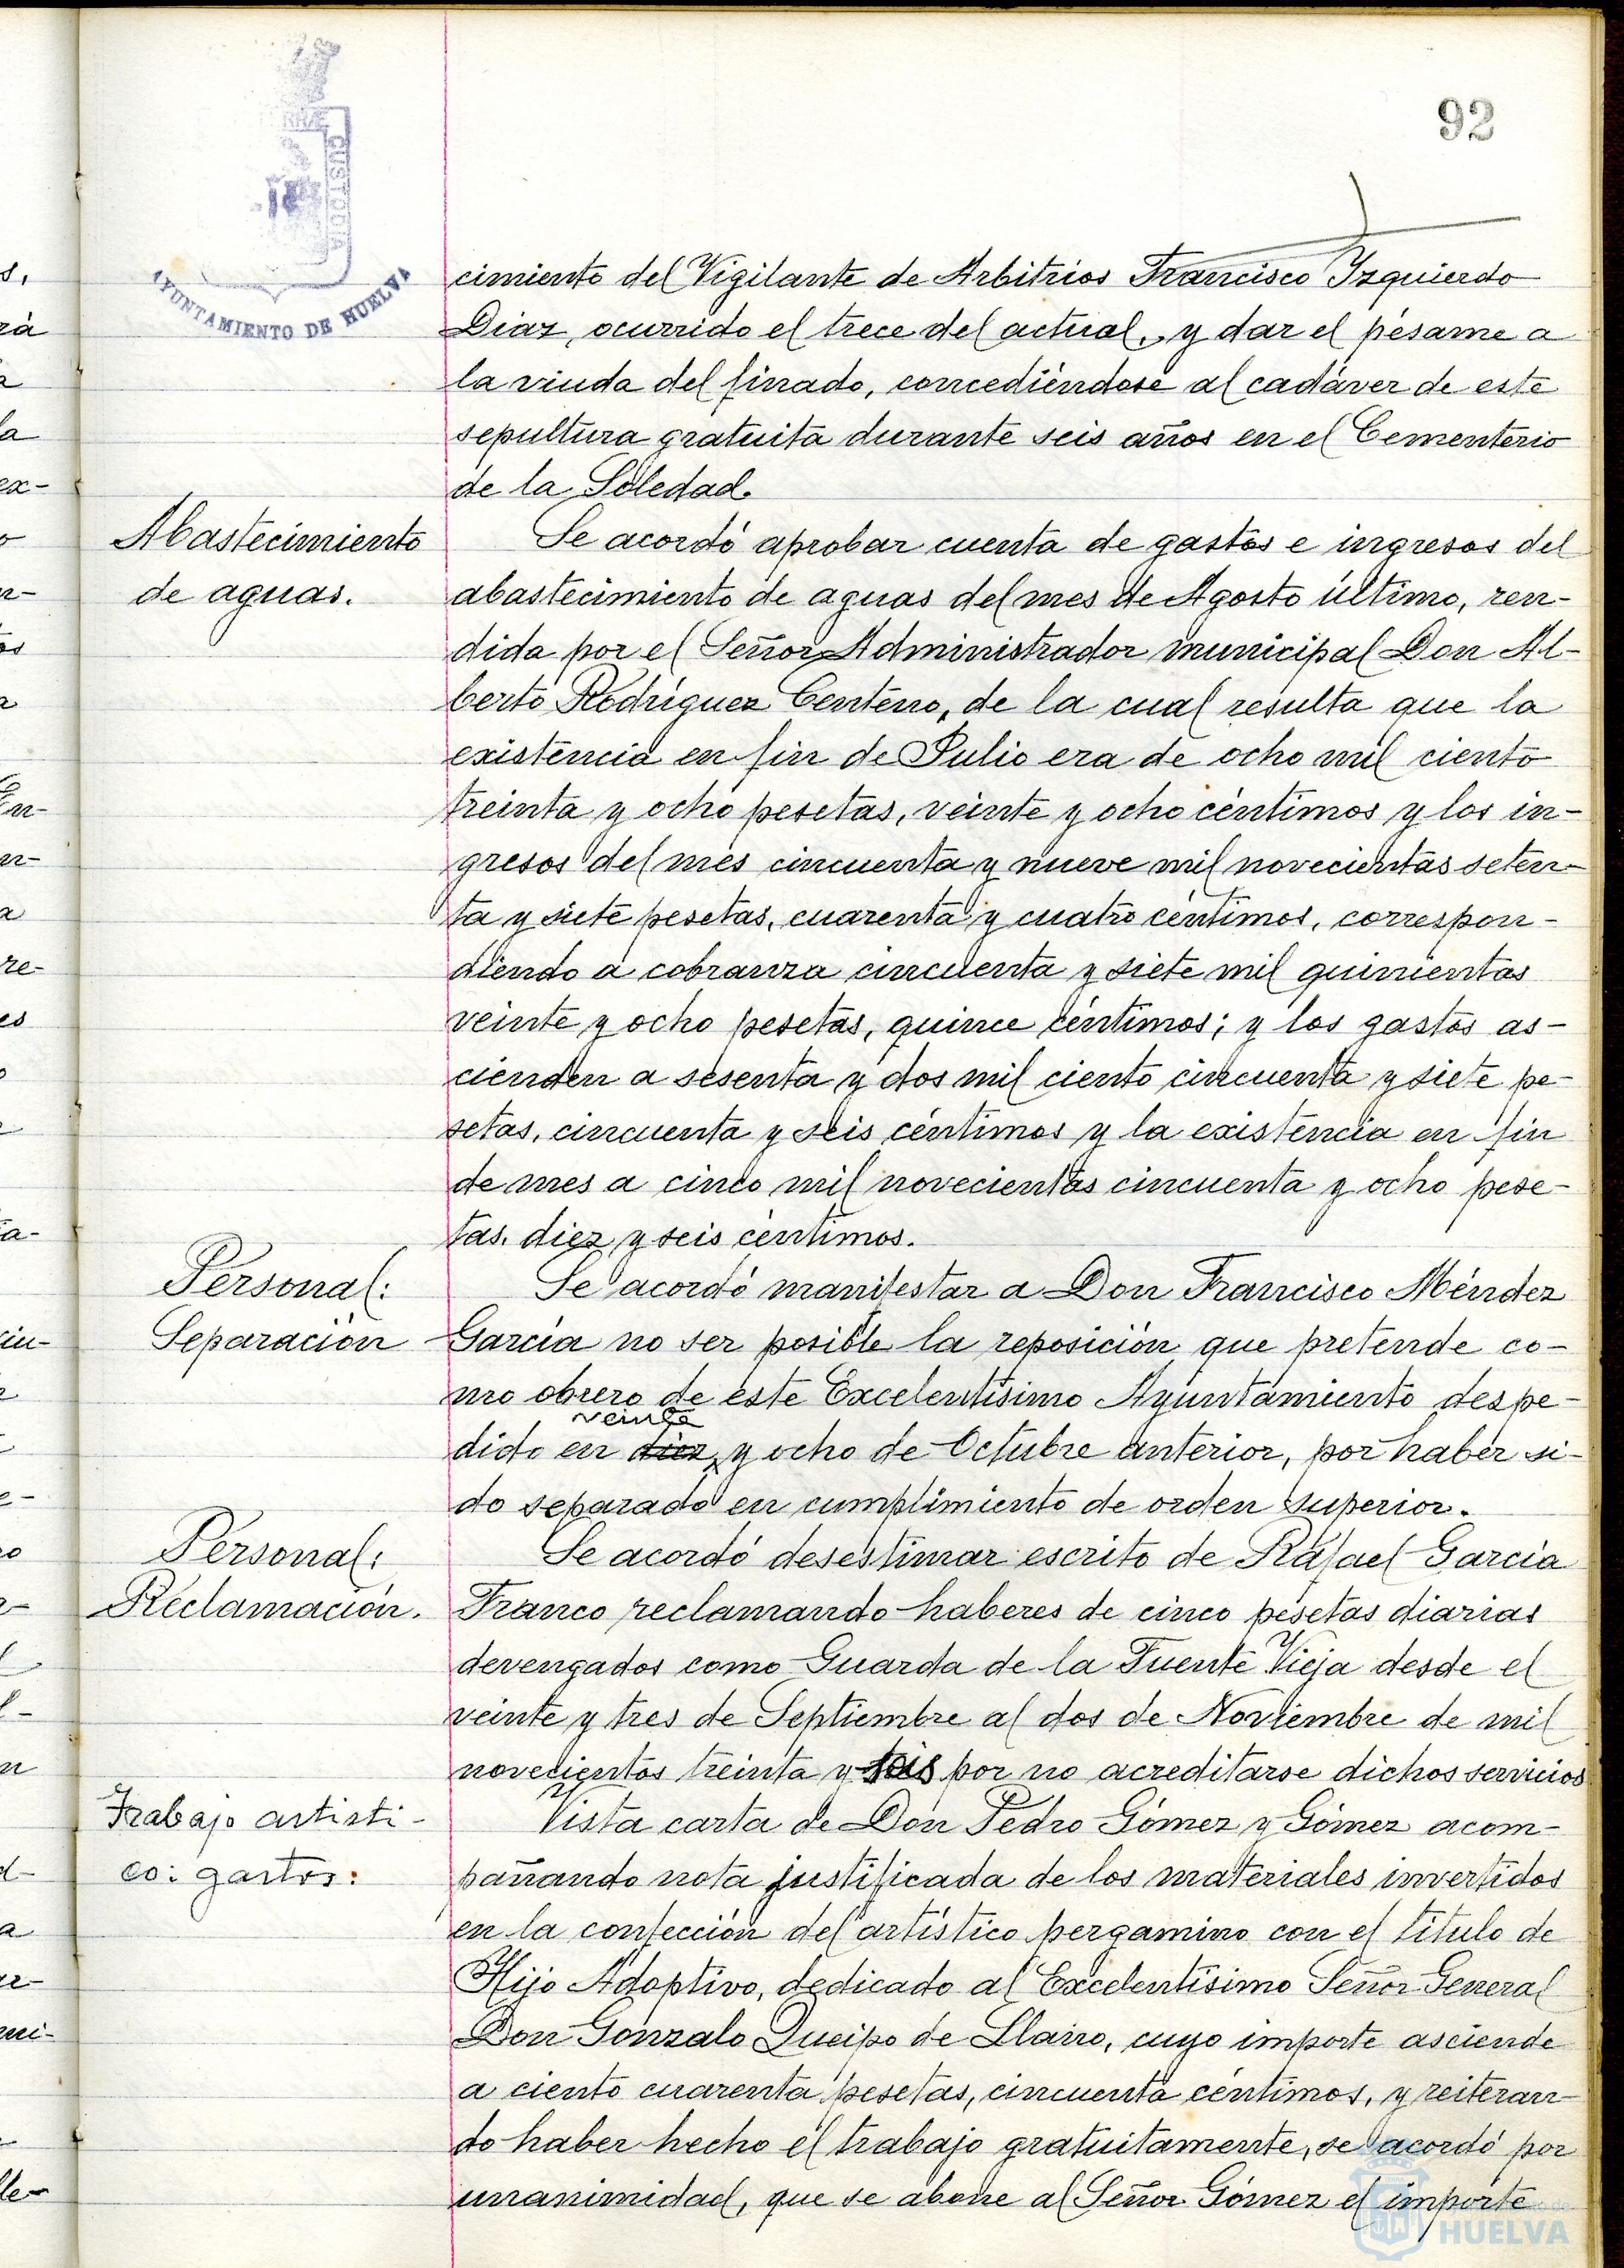 92
AYUNTAMIENTO DE HUELVA
CUSTODIA
cimiento del Vigilante de Arbitrios Francisco Izquierdo
Diaz, ocurrido el trece del actual, y dar el pésame a
la viuda del finado, concediéndose al cadáver de este
sepultura gratuita durante seis años en el Cementerio
de la Soledad.
Abastecimiento
de aguas.
Se acordó aprobar cuenta de gastos e ingresos del
abastecimiento de aguas del mes de Agosto último, ren-
dida por el Señor Administrador municipal Don Al-
berto Rodríguez Centeno, de la cual resulta que la
existencia en fin de Julio era de ocho mil ciento
treinta y ocho pesetas, veinte y ocho céntimos y los in-
gresos del mes cincuenta y nueve mil novecientas seten-
ta y siete pesetas, cuarenta y cuatro céntimos, correspon-
diendo a cobranza cincuenta y siete mil quinientas
veinte y ocho pesetas, quince céntimos; y los gastos as-
cienden a sesenta y dos mil ciento cincuenta y siete pe-
setas, cincuenta y seis céntimos y la existencia en fin
de mes a cinco mil novecientas cincuenta y ocho pese-
tas, diez y seis céntimos.
Personal:
Separación
Se acordó manifestar a Don Francisco Méndez
García no ser posible la reposición que pretende co-
mo obrero de este Excelentísimo Ayuntamiento despe-
veinte
dido en diez y ocho de Octubre anterior, por haber si-
do separado en cumplimiento de orden superior.
Personal:
Reclamación.
Se acordó desestimar escrito de Rafael García
Franco reclamando haberes de cinco pesetas diarias
devengados como Guarda de la Fuente Vieja desde el
veinte y tres de Septiembre al dos de Noviembre de mil
novecientos treinta y seis por no acreditarse dichos servicios
Trabajo artisti-
co: gastos:
Vista carta de Don Pedro Gómez y Gómez acom-
pañando nota justificada de los materiales invertidos
en la confección del artístico pergamino con el título de
Hijo Adoptivo, dedicado al Excelentísimo Señor General
Don Gonzalo Queipo de Llano, cuyo importe asciende
a ciento cuarenta pesetas, cincuenta céntimos, y reiteran-
do haber hecho el trabajo gratuitamente, se acordó por
unanimidad, que se abone al Señor Gómez el importe
HUELVA